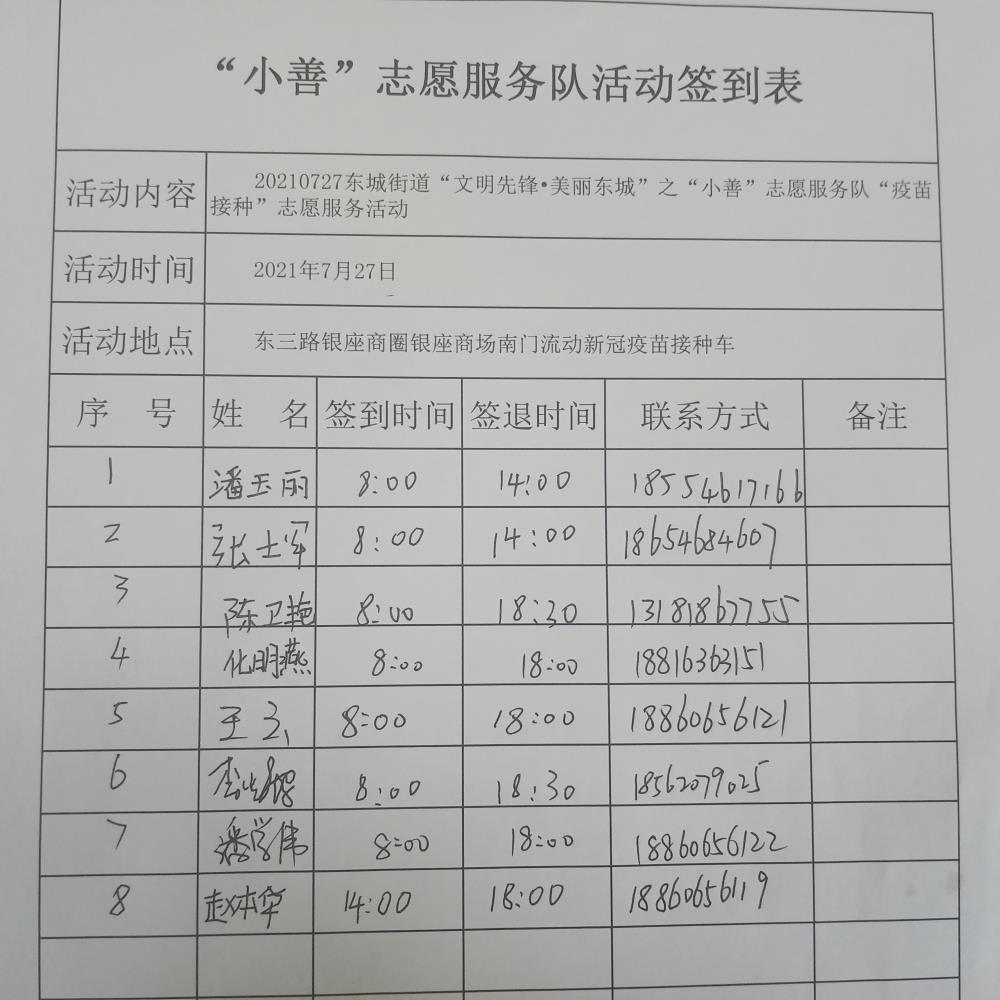 “小善”志愿服务队活动签到表
活动内容 20210727东城街道“文明先锋•美丽东城”之“小善”志愿服务队“疫苗
接种”志愿服务活动
活动时间 2021年7月27日
活动地点 东三路银座商圈银座商场南门流动新冠疫苗接种车
序 号 姓 名 签到时间 签退时间 联系方式 备注
1 潘玉丽 8:00 14:00 18554617166
2 张士军 8:00 14:00 18654684607
3 陈卫艳 8:00 18:30 13181867755
4 化明燕 8:00 18:00 18816363151
5 王 8:00 18:00 18860656121
6 李 8:00 18:30 18562079025
7 潘学伟 8:00 18:00 18860656122
8 赵本华 14:00 18:00 18860656119